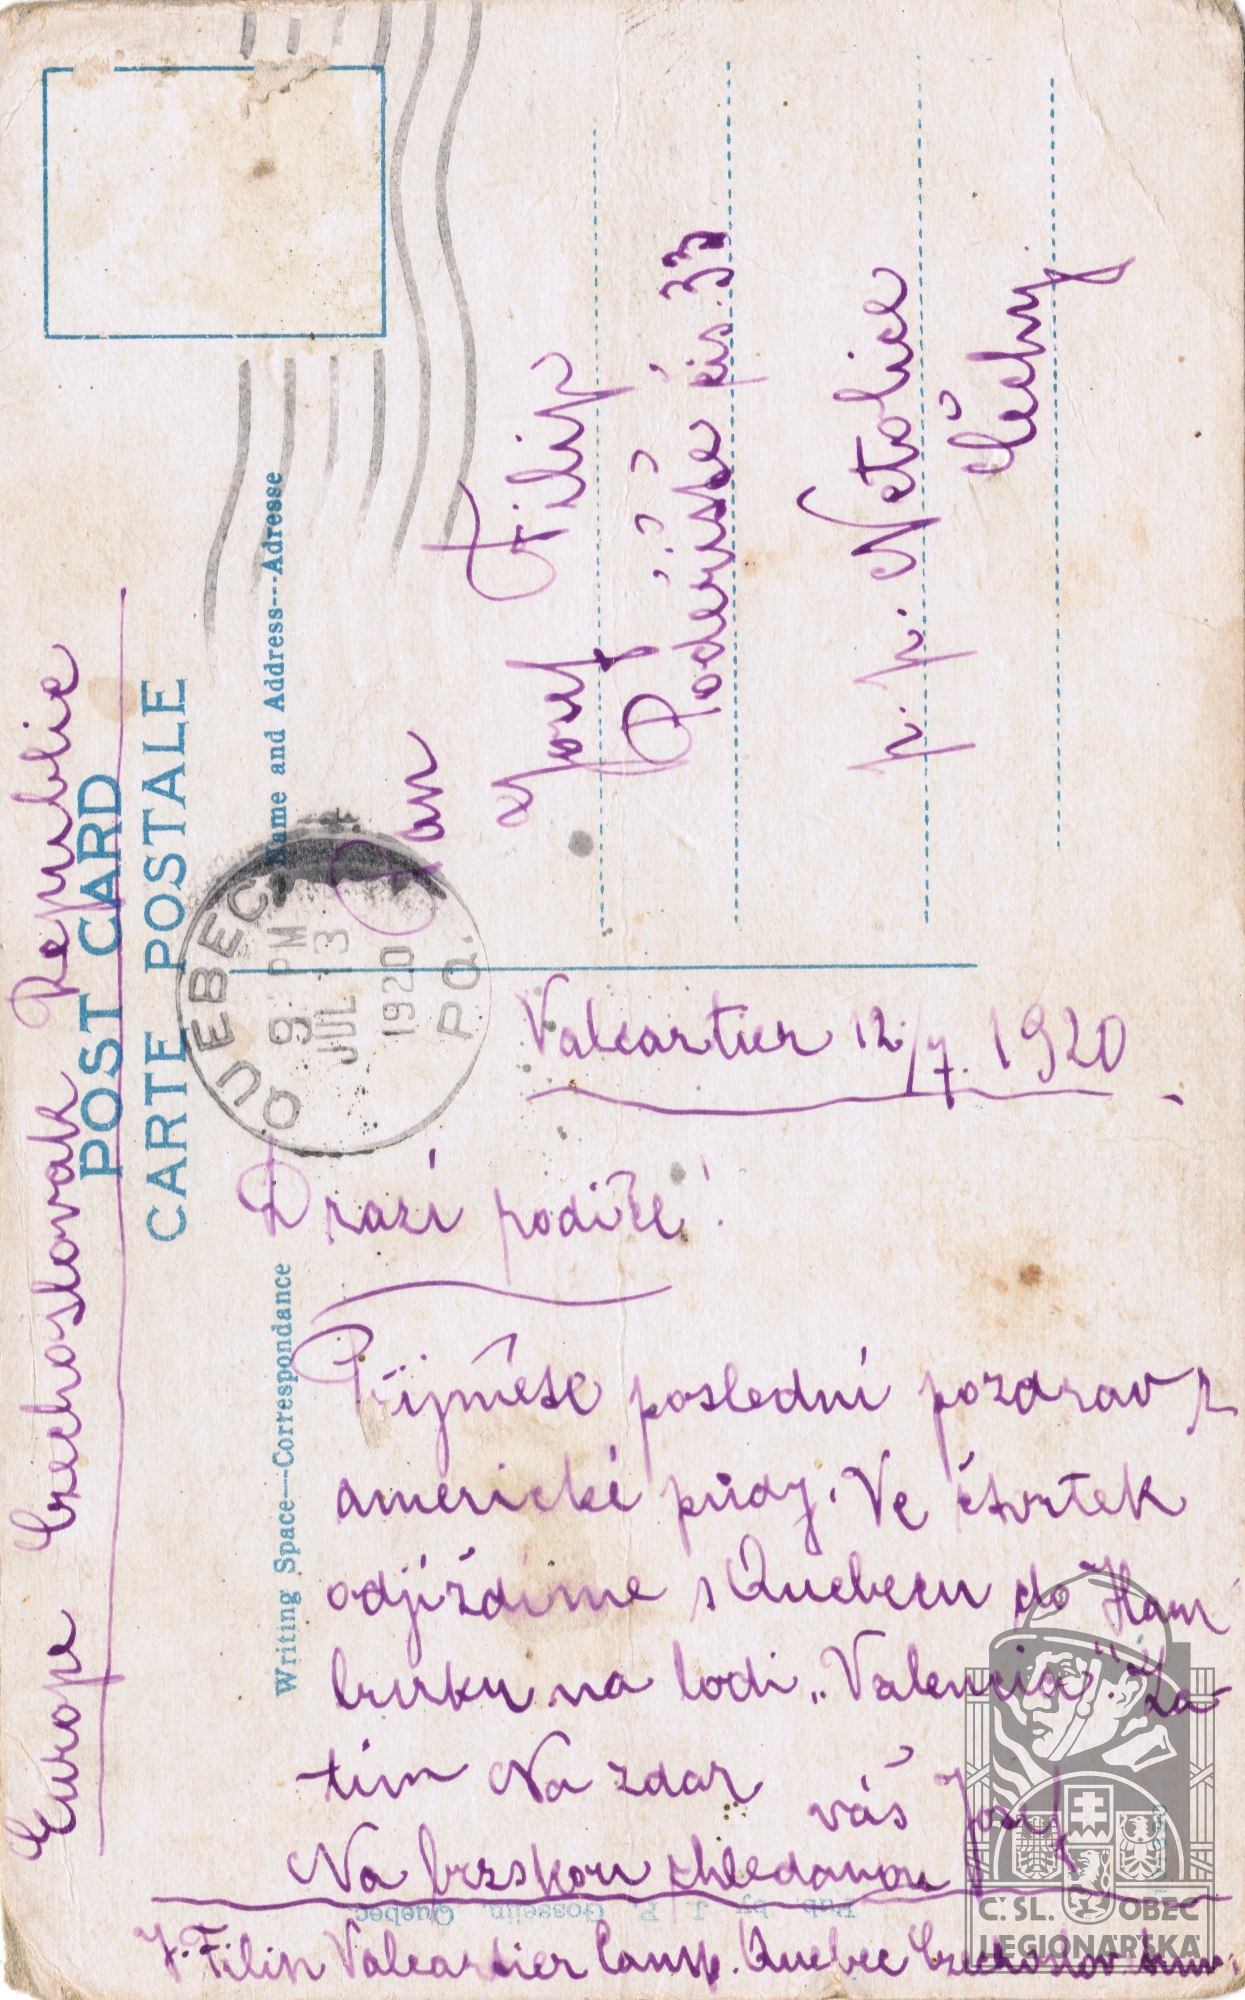 Europe Czechoslovak Republic
POST CARD
CARTE POSTALE
Name and Address--Adresse
QUEBEC
9 PM
JUL 13
1920
P.Q.
Pan
Josef Filip
Poděriště čis. 33
p. p. Netolice
Čechy
Writing Space--Correspondance
Valcartier 12/7. 1920
Drazí rodiče!
Přijměte poslední pozdrav z
americké půdy. Ve čtvrtek
odjíždíme s Quebecu do Ham
burku na lodi „Valencia". Za-
tím Na zdar
váš Josef
Na brzskou shledanou
J. Filip Valcartier Camp. Quebec Czechoslov.
Pub by J. P. Gosselin, Quebec
Č. SL. OBEC
LEGIONÁŘSKÁ